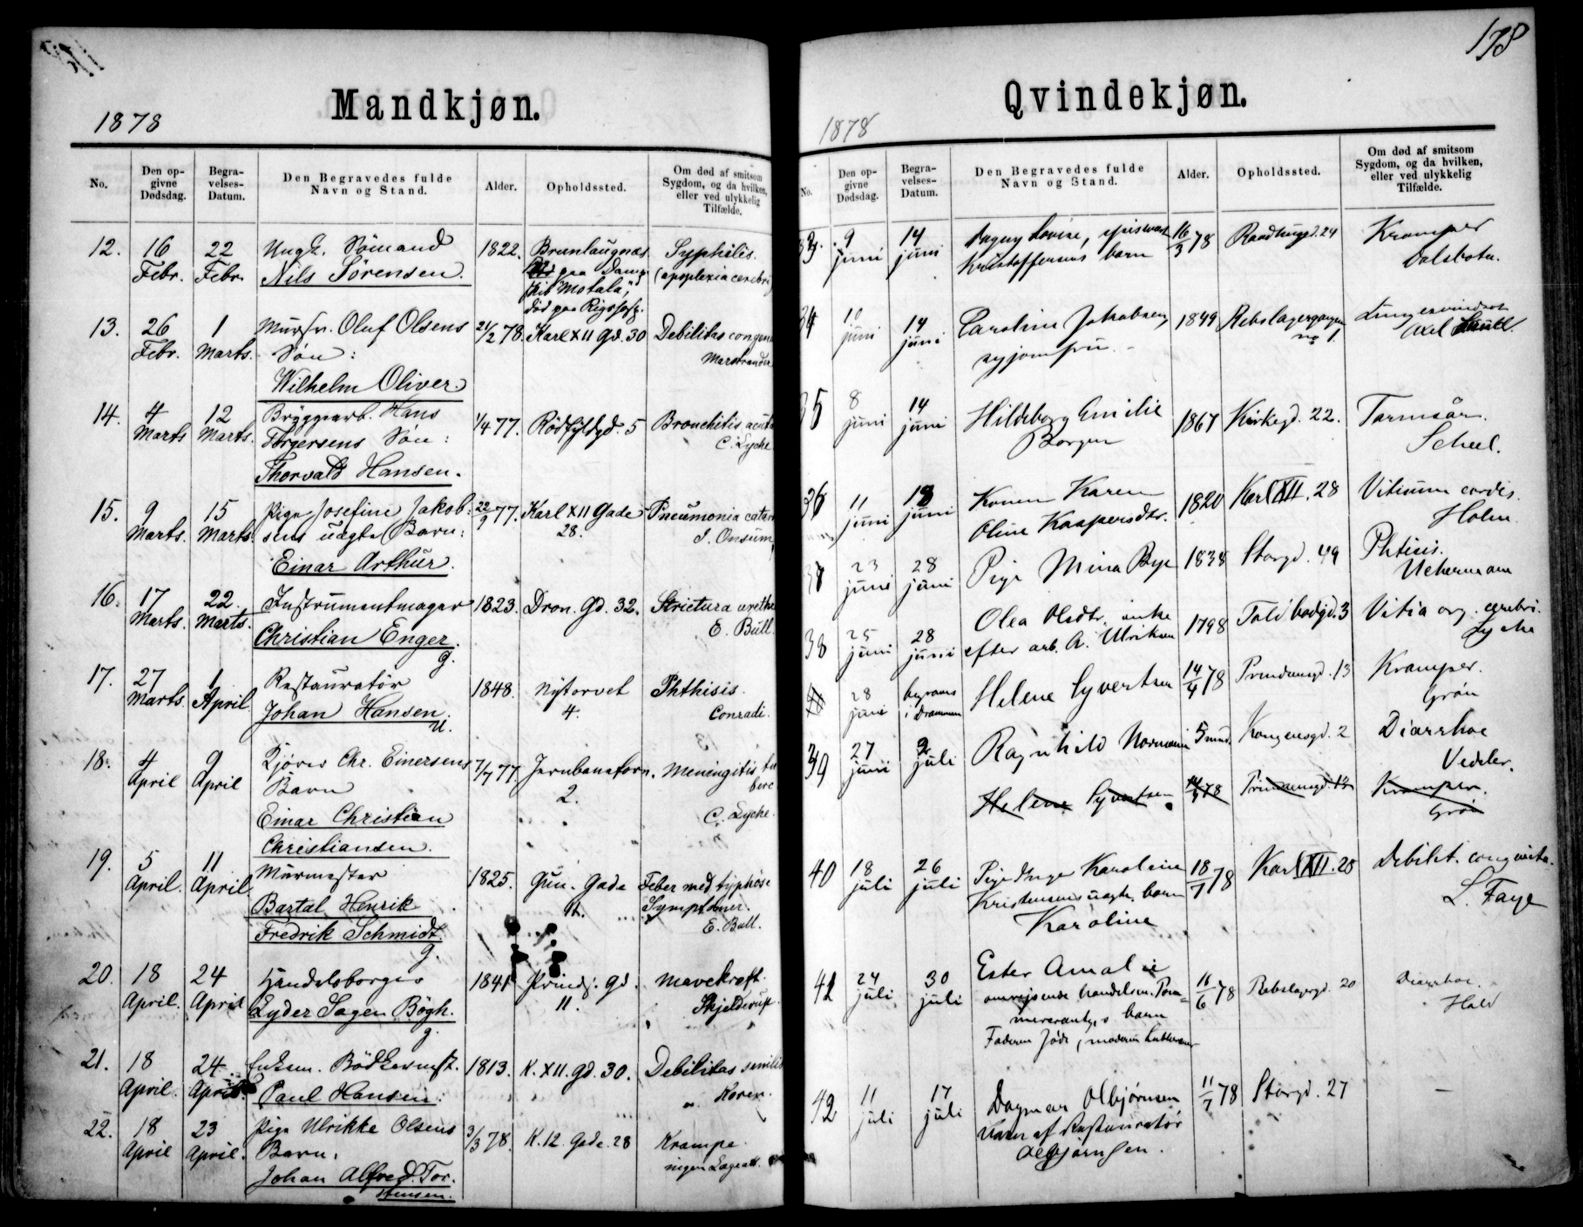 178
Mandkjøn.
1878
No.
Den op-
givne
Dødsdag.
Begra-
velses-
Datum.
Den Begravedes fulde
Navn og Stand.
Alder.
Opholdssted.
Om død af smitsom
Sygdom, og da hvilken,
eller ved ulykkelig
Tilfælde.
12. 16 Febr. 22 Febr. Ungk. Sömand
Nils Sörensen 1822. Brunlaugnæs
paa Damp-
skib "Motala",
död paa Rigshosp. Syphilis.
(apoplexia cerebri)
13. 26 Febr. 1 Marts. Murssv. Oluf Olsens
Sön:
Wilhelm Oliver 21/2 78. Karl XII Gd. 30 Debilitas congen
Marstrander
14. 4 Marts 12 Marts. Bryggearb. Hans
Torgersens Sön:
Thorvald Hansen. 1/4 77. Rödfyldgd. 5 Bronchitis acuta
C. Lycke
15. 9 Marts. 15 Marts Pige Josefine Jakob-
sens uægte Barn:
Einar Arthur. 22/9 77. Karl XII Gade
28. Pneumonia catarr
J. Onsum
16. 17 Marts. 22 Marts. Instrumentmager
Christian Enger.
g. 1823. Dron. Gd. 32. Strictura urethr
E. Bull.
17. 27 Marts. 1 April Restauratör
Johan Hansen.
u. 1848. Nytorvet
4. Phthisis.
Conradi.
18. 4 April 9 April Kjörer Chr. Einersens
Barn
Einar Christian
Christiansen. 7/7 77. Jernbanetorv.
2. Meningitis tu
berc
C. Lycke.
19. 5 April. 11 April Murmester
Bartal Henrik
Fredrik Schmidt
g. 1825. Grün. Gade
11. Feber med typhöse
Symptomer.
E. Bull.
20. 18 April. 24 April Handelsborger
Eyder Sagen Bögh.
g. 1841 Prinds. gd.
11. Mavekræft.
Skjelderup
21. 18 April. 24. April Enkem. Bödkermst.
Paul Hansen: 1813. K. XII. gd. 30. Debilitas senilis
Koren.
22. 18 April 23 April. Pige Ulrikke Olsens
Barn:
Johan Alfred Tor-
stensen. 3/3 78. K. 12. Gade. 28 Krampe.
ingen Lægeatt.
Qvindekjøn.
1878
No.
Den op-
givne
Dødsdag.
Begra-
velses-
Datum.
Den Begravedes fulde
Navn og Stand.
Alder.
Opholdssted.
Om død af smitsom
Sygdom, og da hvilken,
eller ved ulykkelig
Tilfælde.
33. 9 juni 14 juni Dagny Lovise,
Kristoffersens barn 16/3 78 24 Kramper
34 10 juni 14 juni Caroline Jakobsen,
syjomfru. 1849 Rebslagergangen
Axel
35 8 juni 14 juni Hildeborg Emilie
Borgen 1867 Kirkegd. 22. Tarmsår.
Scheel.
36 11 juni 18 juni Konen Karen
Oline Kaspersdtr. 1820 Karl XII. 28 Vitium cordis.
Holm
37 23 juni 28 juni Pige Mina Bye 1838 Storgd. 49 Phtisis.
Uchermann
38 25 juni 28 juni Olea Olsdtr. enke
efter arb. A. Ulriksen 1798 Toldbodgd. 3 Vitia org. cerebri.
Lycke
28 juni begraves
i Drammen Helene Syvertsen 14/4 78 Prindsensgd. 13 Kramper.
Grön
39 27 juni 2 juli Ragnhild Normann 5 mnd. Kongensgd. 2 Diarrhoe
Vedeler.
Helene Syvertsen 14/4 78 Prindsensgd. 13 Kramper.
Grön
40 18 juli 26 juli Pige Inga Karoline
Kristensens uægte barn
Karoline 18/7 78 Karl XII. 20 Debilit. congenita.
L. Faye
41 24 juli 30 juli Ester Amalie
omreisende handelsm. Pom-
merantz's barn
Faderen Jöde, moderen Lutheran 11/6 78 Rebslagergd. 20 Diarrhoe.
Hald
42 11 juli 17 juli Dagmar Olbjörnsen
barn af Restauratör
Olbjörnsen. 11/7 78 Storgd. 27 —